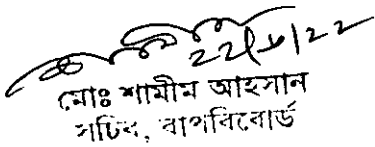 22/৮/22
মোঃ শামীম আহসান
সচিব, বাপবিবোর্ড